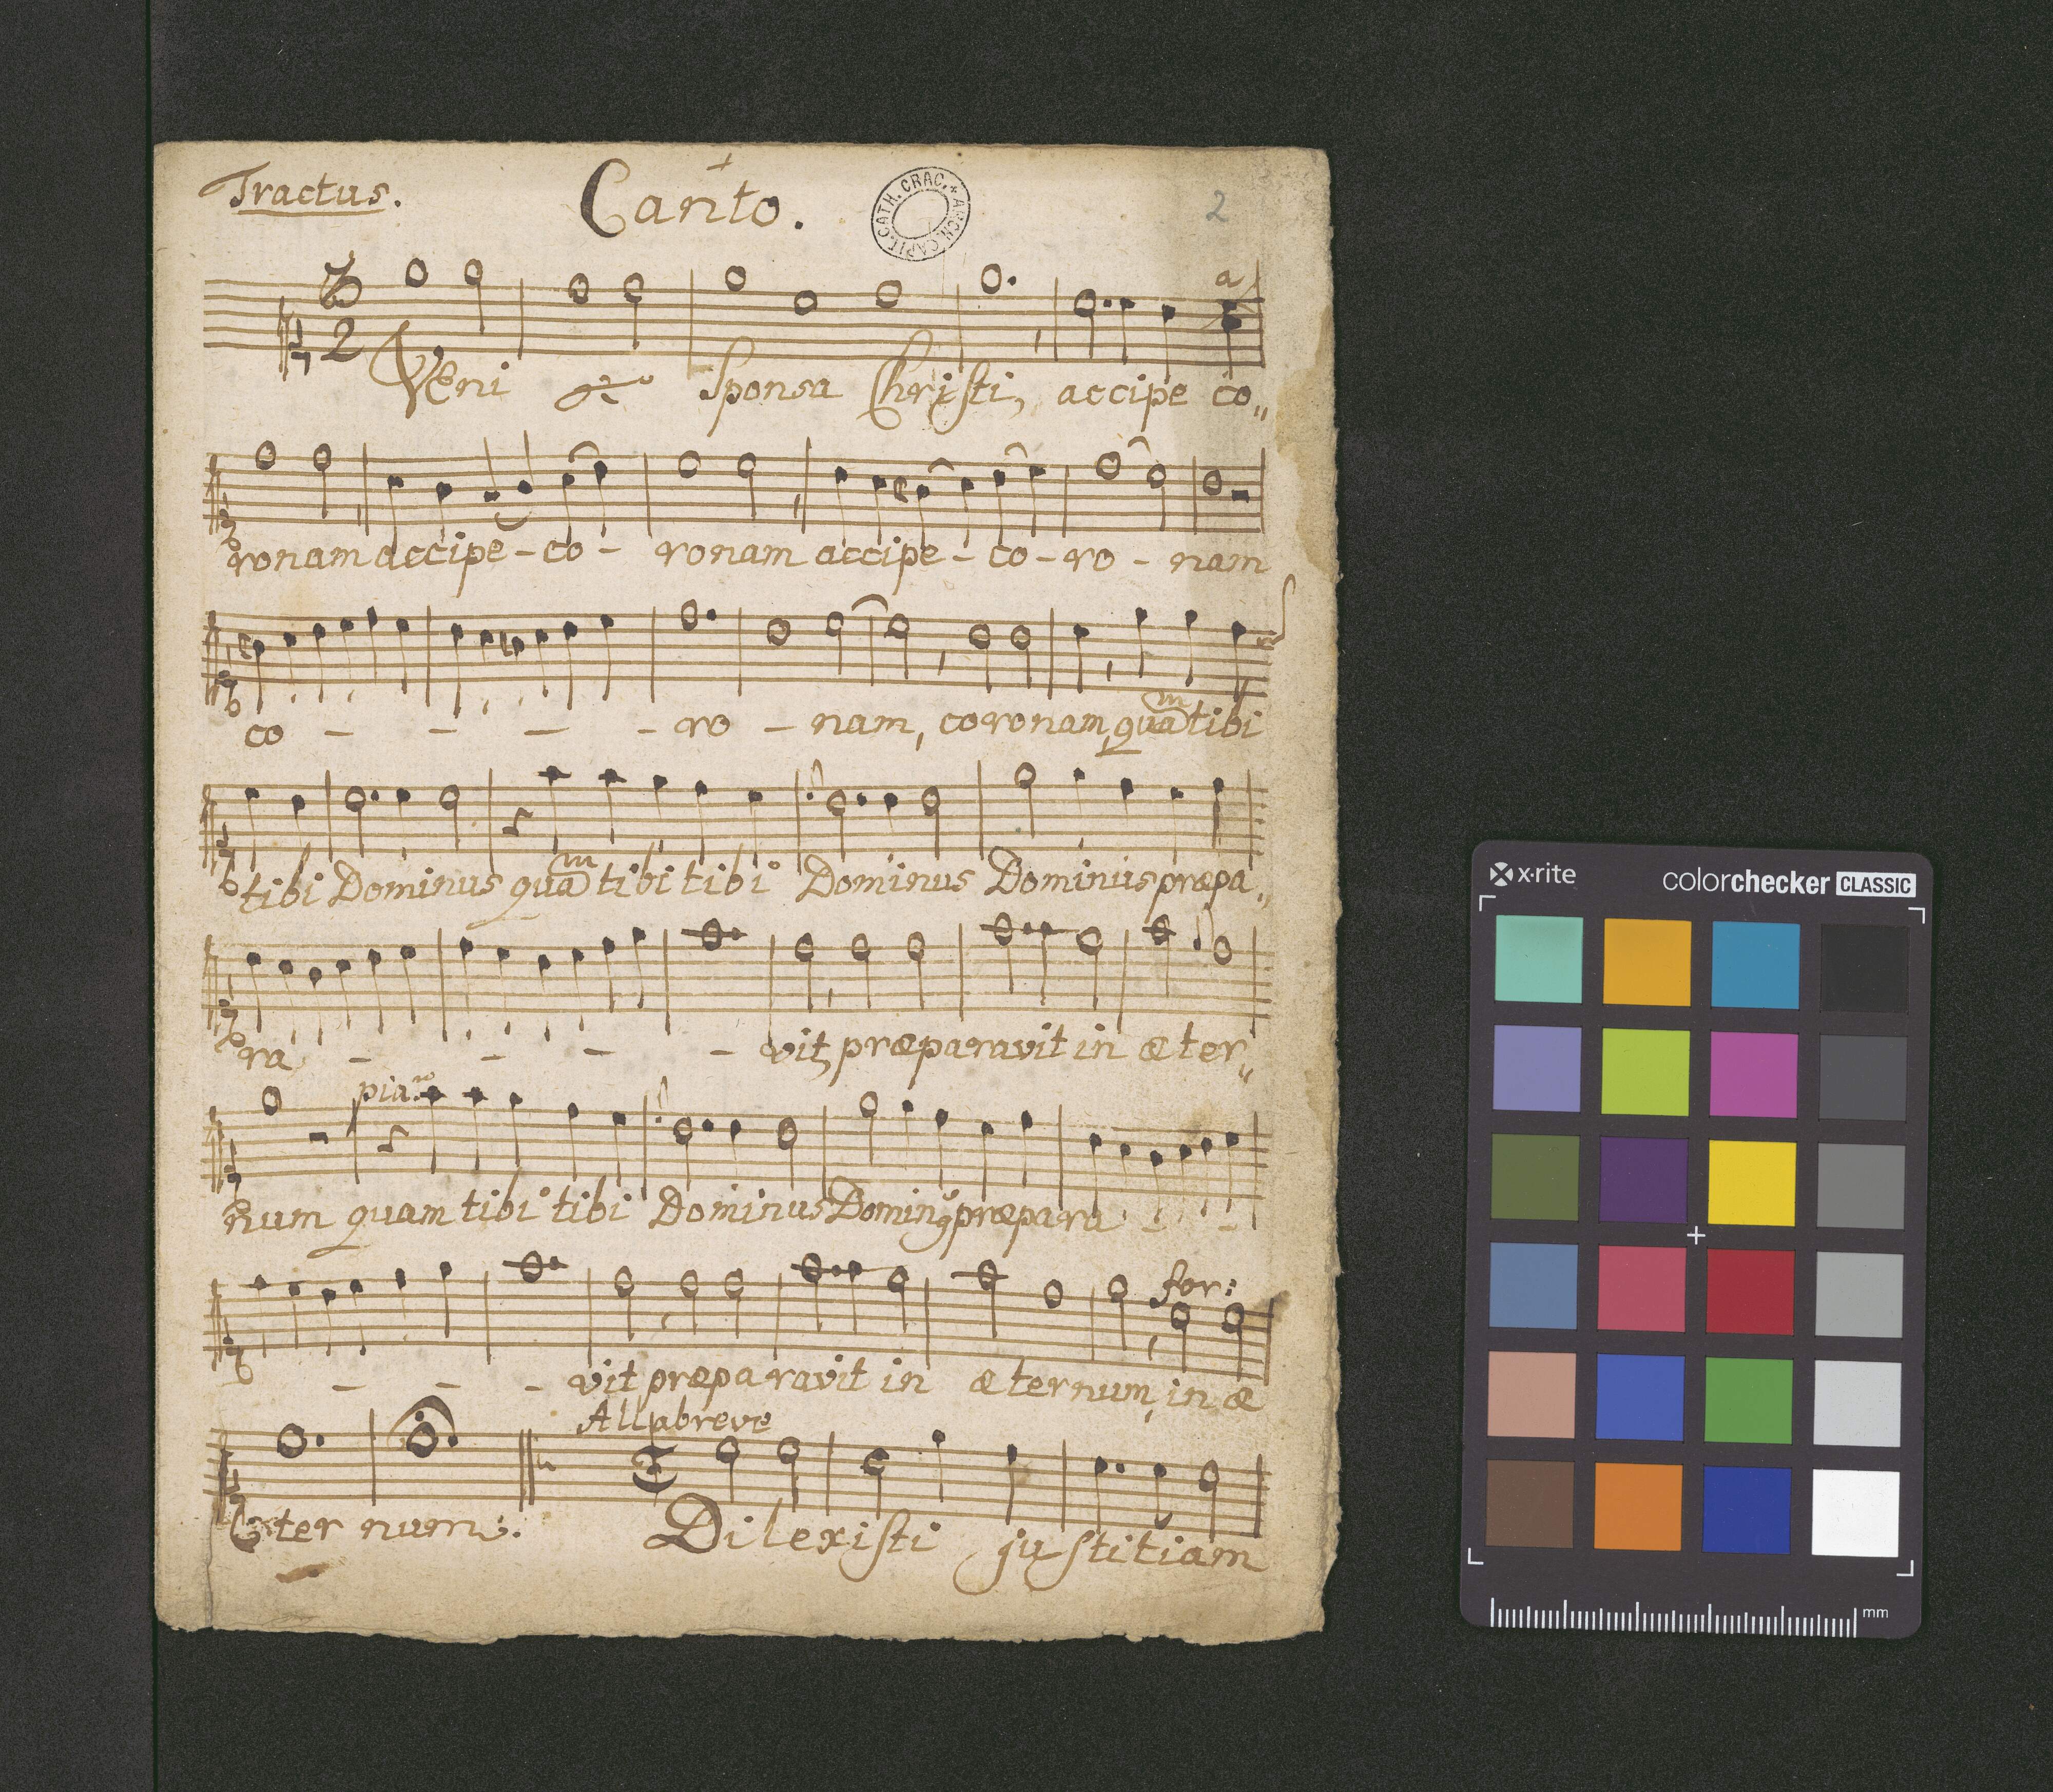 Tractus. Canto. 2
ARCH. CAPIT. CATH. CRAC.
3
2
a
Veni Sponsa Christi, accipe co„
ronam accipe - co - ronam accipe - co - ro - nam
co - - - - ro - nam, coronam, quam tibi
tibi Dominus quam tibi tibi Dominus Dominus præpa„
ra - - - - vit, præparavit in æter„
pia:no
num quam tibi tibi Dominus Dominꝰ præpara - -
for:
- - - vit præparavit in æternum, in æ
Allabreve
ter num:. Dilexisti justitiam
x·rite colorchecker CLASSIC
mm